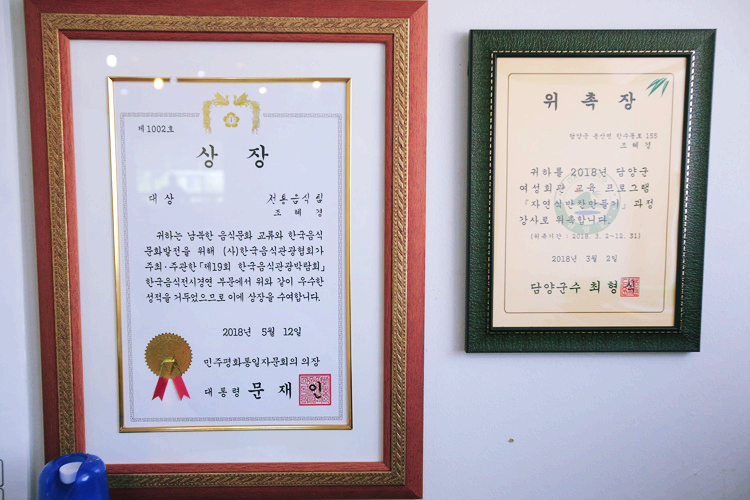 제1002호
상 장
대 상
전통음식팀
조 혜 경
귀하는 남북한 음식문화 교류와 한국음식
문화발전을 위해 (사)한국음식관광협회가
주최·주관한「제19회 한국음식관광박람회」
한국음식전시경연 부문에서 위와 같이 우수한
성적을 거두었으므로 이에 상장을 수여합니다.
2018년 5월 12일
민주평화통일자문회의 의장
대통령 문 재 인
위 촉 장
담양군 봉산면 한수동로 155
조 혜 경
귀하를 2018년 담양군
여성회관 교육 프로그램
『자연식반찬만들기』 과정
강사로 위촉합니다.
(위촉기간 : 2018. 3. 2~12. 31)
2018년 3월 2일
담양군수 최형식